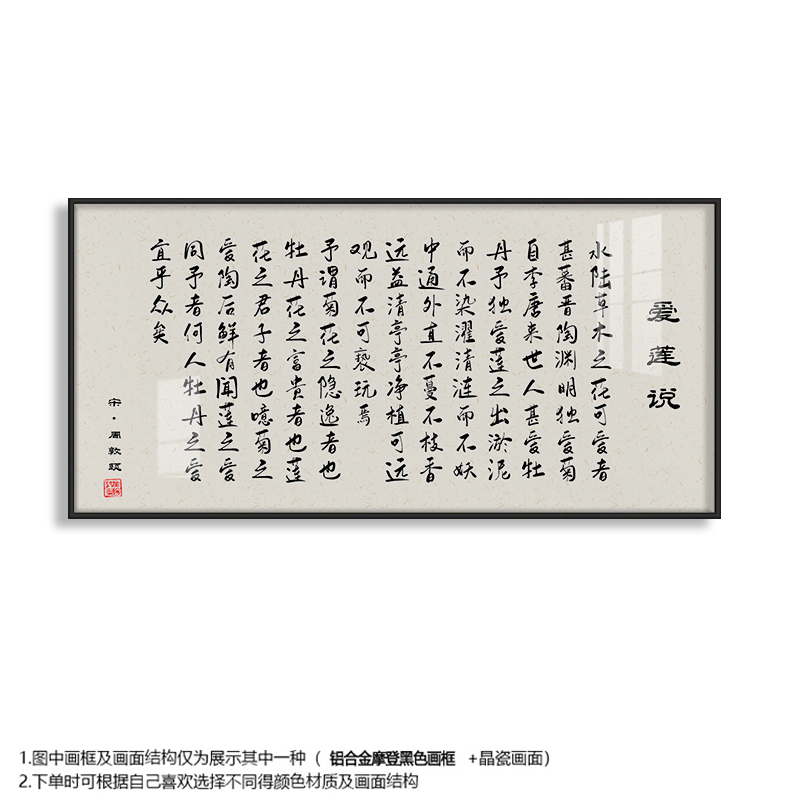 爱莲说
水陆草木之花可爱者
甚蕃晋陶渊明独爱菊
自李唐来世人甚爱牡
丹予独爱莲之出淤泥
而不染濯清涟而不妖
中通外直不蔓不枝香
远益清亭亭净植可远
观而不可亵玩焉
予谓菊花之隐逸者也
牡丹花之富贵者也莲
花之君子者也噫菊之
爱陶后鲜有闻莲之爱
同予者何人牡丹之爱
宜乎众矣
宋·周敦颐
1.图中画框及画面结构仅为展示其中一种（ 铝合金摩登黑色画框 +晶瓷画面）
2.下单时可根据自己喜欢选择不同得颜色材质及画面结构